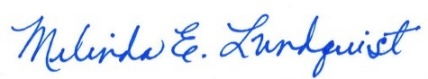 Melinda E. Lundquist